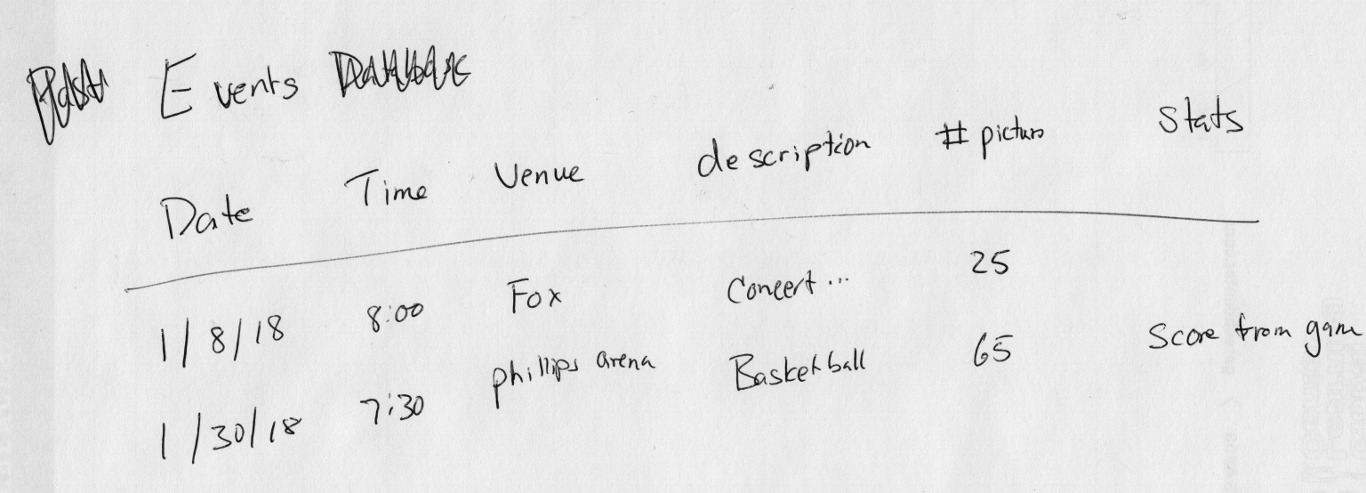 Events
Date Time Venue description # pictures Stats
1/8/18 8:00 Fox Concert... 25
1/30/18 7:30 phillips arena Basketball 65 Score from game